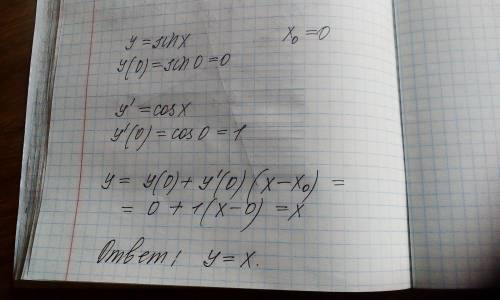 y = sin x x₀ = 0
y(0) = sin 0 = 0
y' = cos x
y'(0) = cos 0 = 1
y = y(0) + y'(0) (x - x₀) =
= 0 + 1(x - 0) = x
Ответ: y = x.